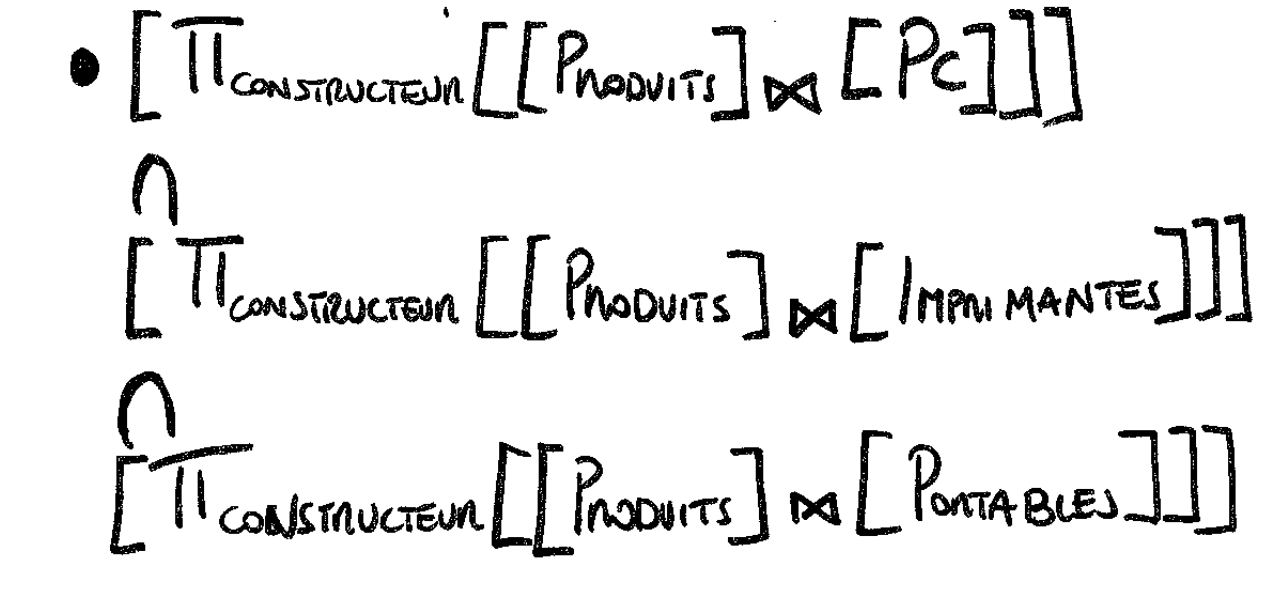 • [ΠCONSTRUCTEUR[[PRODUITS] ⋈ [PC]]]
∩
[ΠCONSTRUCTEUR[[PRODUITS] ⋈ [IMPRIMANTES]]]
∩
[ΠCONSTRUCTEUR[[PRODUITS] ⋈ [PORTABLES]]]